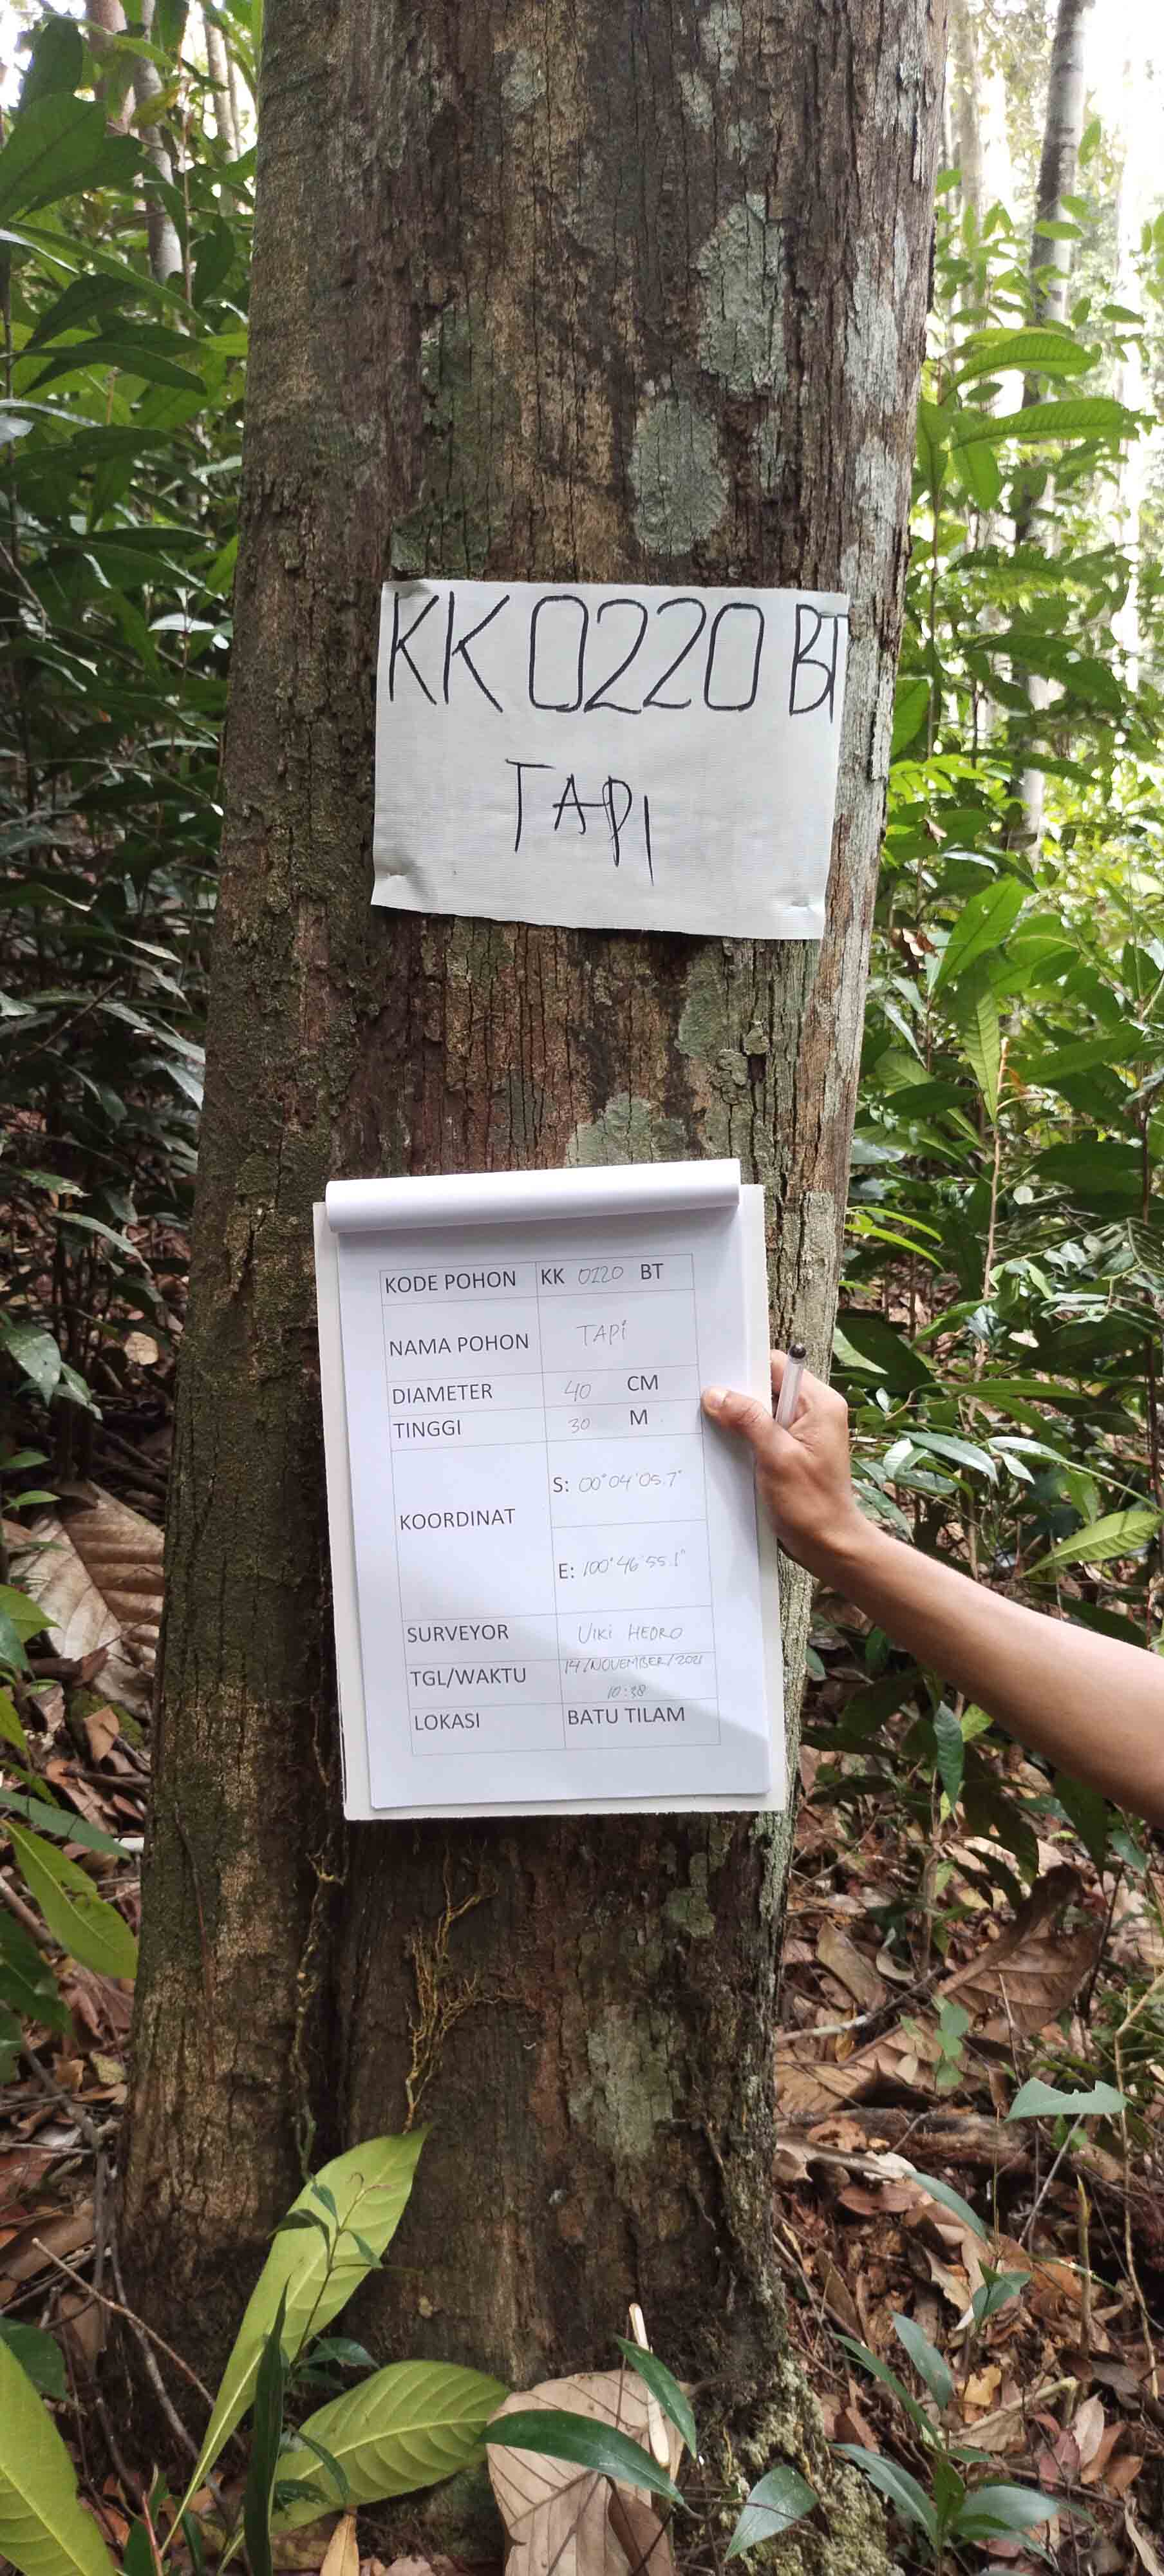 KK 0220 BT
TAPI
KODE POHON KK 0220 BT
NAMA POHON TAPi
DIAMETER 40 CM
TINGGI 30 M
KOORDINAT
S: 00°04'05.7"
E: 100°46'55.1"
SURVEYOR UIKI HEDRO
TGL/WAKTU 14/NOVEMBER/2021
10:38
LOKASI BATU TILAM